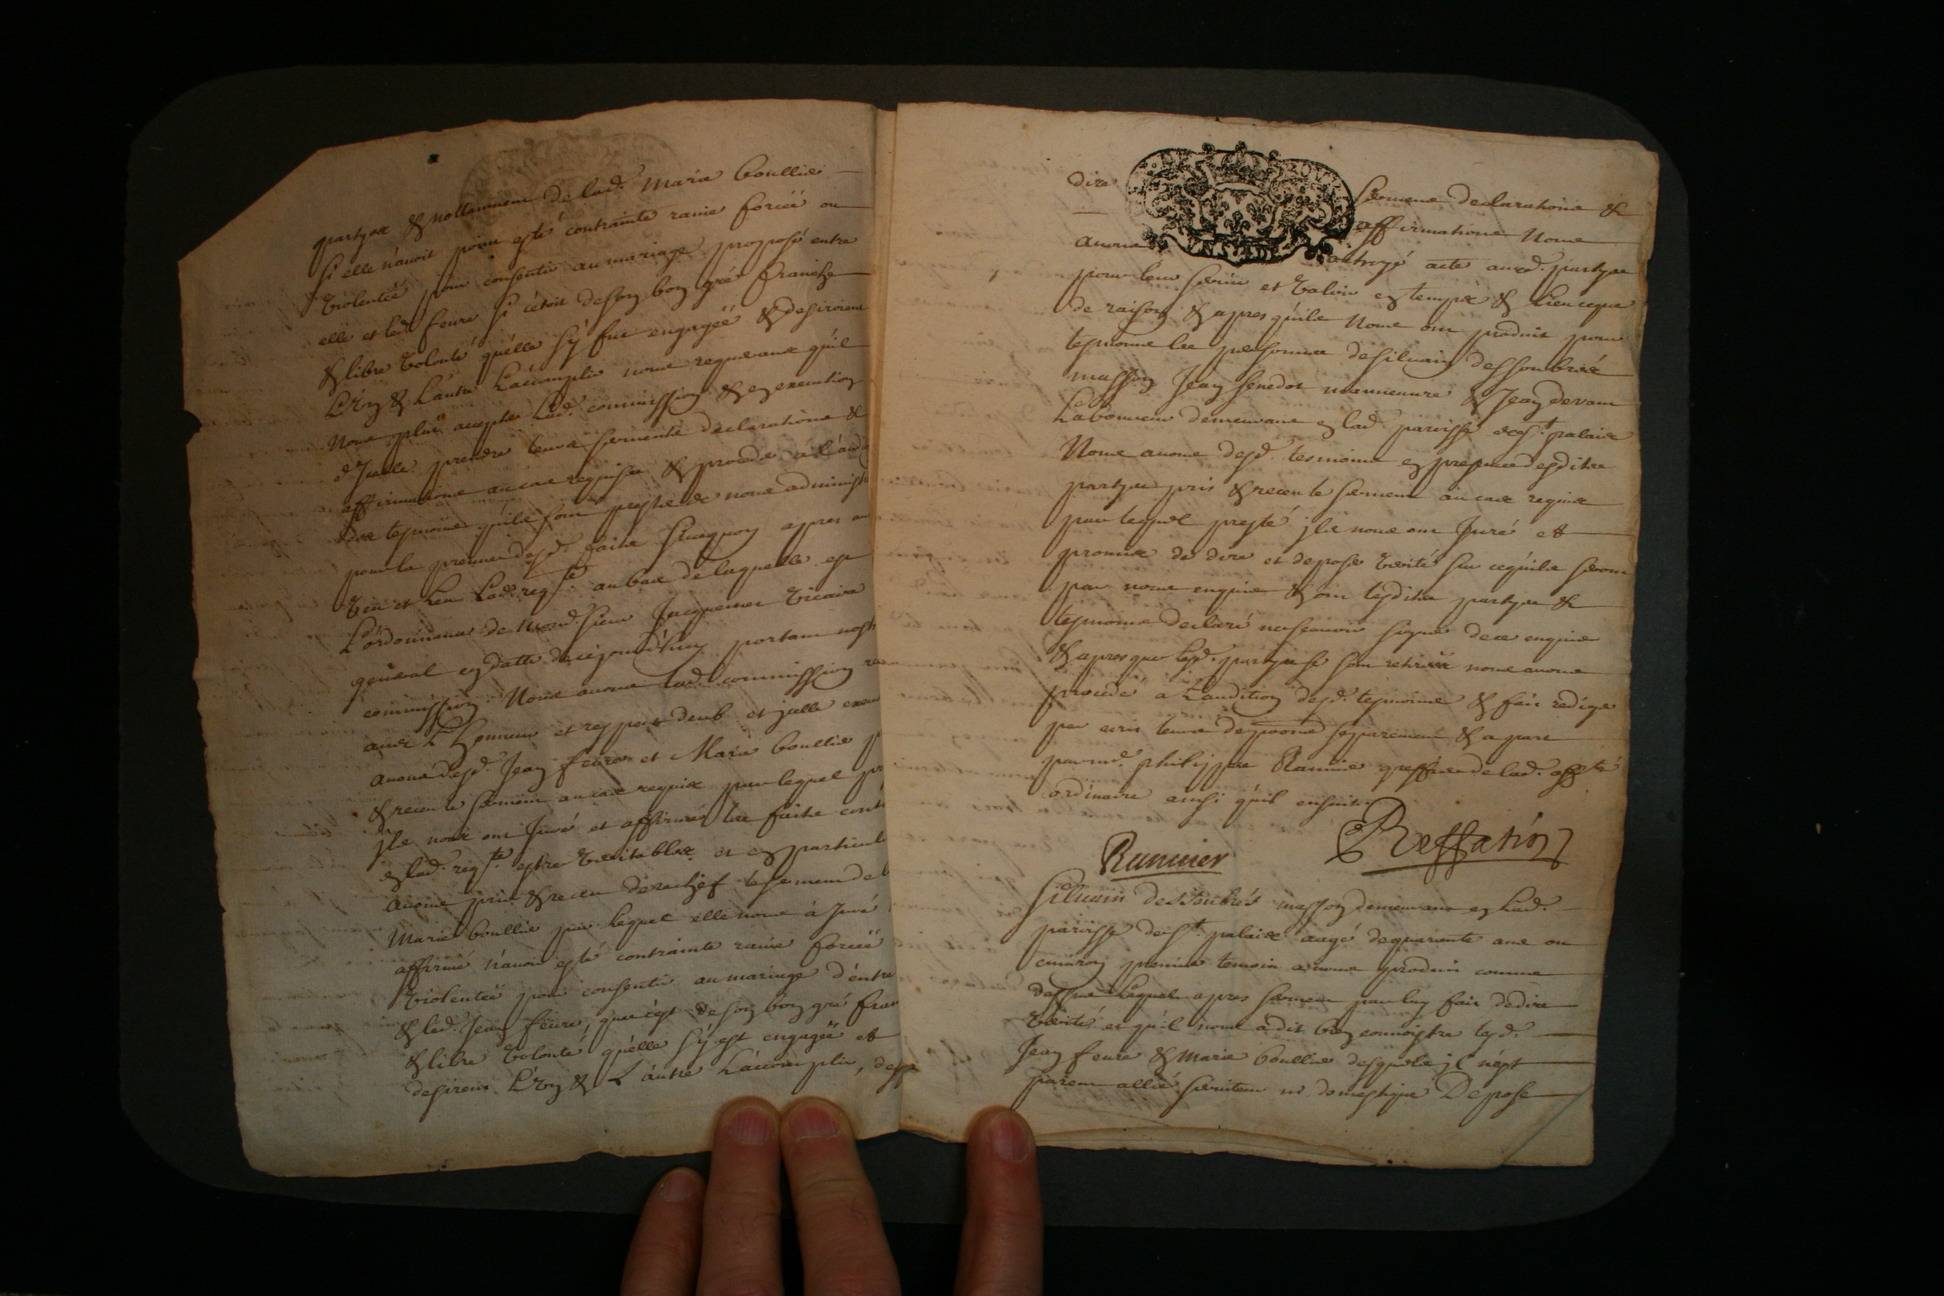 partyes & nottamment de lad. Marie boullié
si elle n'avoit point esté contrainte ravie forcée ou
violentée pour consentir au mariage proposé entre
elle et led. feure si c'étoit de son bon gré franche
& libre volonté qu'elle s'y fut engagée & desiroient
L'un & L'autre L'accomplir nous requerans qu'il
Nous plût accepter Lad. commission & en execution
d'Icelle prendre leurs serments declarations &
affirmations au cas requises & procéder à l'aud
des tesmoins qu'ils sont prests de nous administ
pour la preuve desd. faits Surquoy apres av
veu et leu Lad. reqte. au bas de laquelle est
L'ordonnance de mond. sieur Jacquemet vicaire
général en datte de cejourd'huy portant nost
commission Nous avons lad. commission
avec L'honneur et respect deub et jcelle
avons desd. Jean feure et Marie boullié
& receu le serment au cas requis par lequel
jls nous ont Juré et affirmés les faits cont
en lad. reqte. estre veritables et en particulie
avons pris & receu derechef le serment de
Marie boullié par lequel elle nous à Juré
affirmé n'avoir esté contrainte ravie forcée
violentée pour consentir au mariage d'entre
& led. Jean feure, que c'est de son bon gré fran
& libre volonté qu'elle s'y est engagée et
desirent L'un & L'autre L'accomplir,
dire
serment declarations &
affirmations Nous
avons
octroyé acte auxd. partyes
pour leur servir et valoir en temps & lieu ce que
de raison & apres qu'ils Nous ont produit pour
tesmoins les personnes de silvain dessoubrés
masson Jean senedot manneuvre & Jean devau
Laboureur demeurans en lad. parroisse de St. palais
Nous avons desd. tesmoins en presence desdites
partyes pris & receu le serment au cas requis
par lequel presté jls nous ont Juré et
promis de dire et deposer verité sur ce qu'ils seront
par nous enquis & ont lesdites partyes &
tesmoins declaré ne sçavoir signer de ce enquis
& apres que lesd. partyes se sont retirées nous avons
procédé à L'audition desd. tesmoins & fait rediger
par ecrit leurs depositions separement & a part
par me. philippe Rannier greffier de lad. offté
ordinaire ainsi qu'il ensuit
Rannier
Silvain dessoubrés masson demeurans en Lad.
parroisse de St. palais aagé de quarante ans ou
environ premier temoin a nous produit comme
dessus Lequel apres serment par luy fait de dire
verité et qu'il nous a dit bien connoistre lesd.
Jean feure & marie boullié desquels jl n'est
parent allié serviteur ni domestique Depose